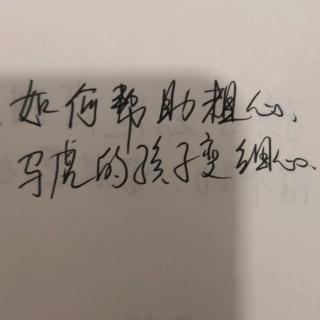 如何帮助粗心、
马虎的孩子变细心。